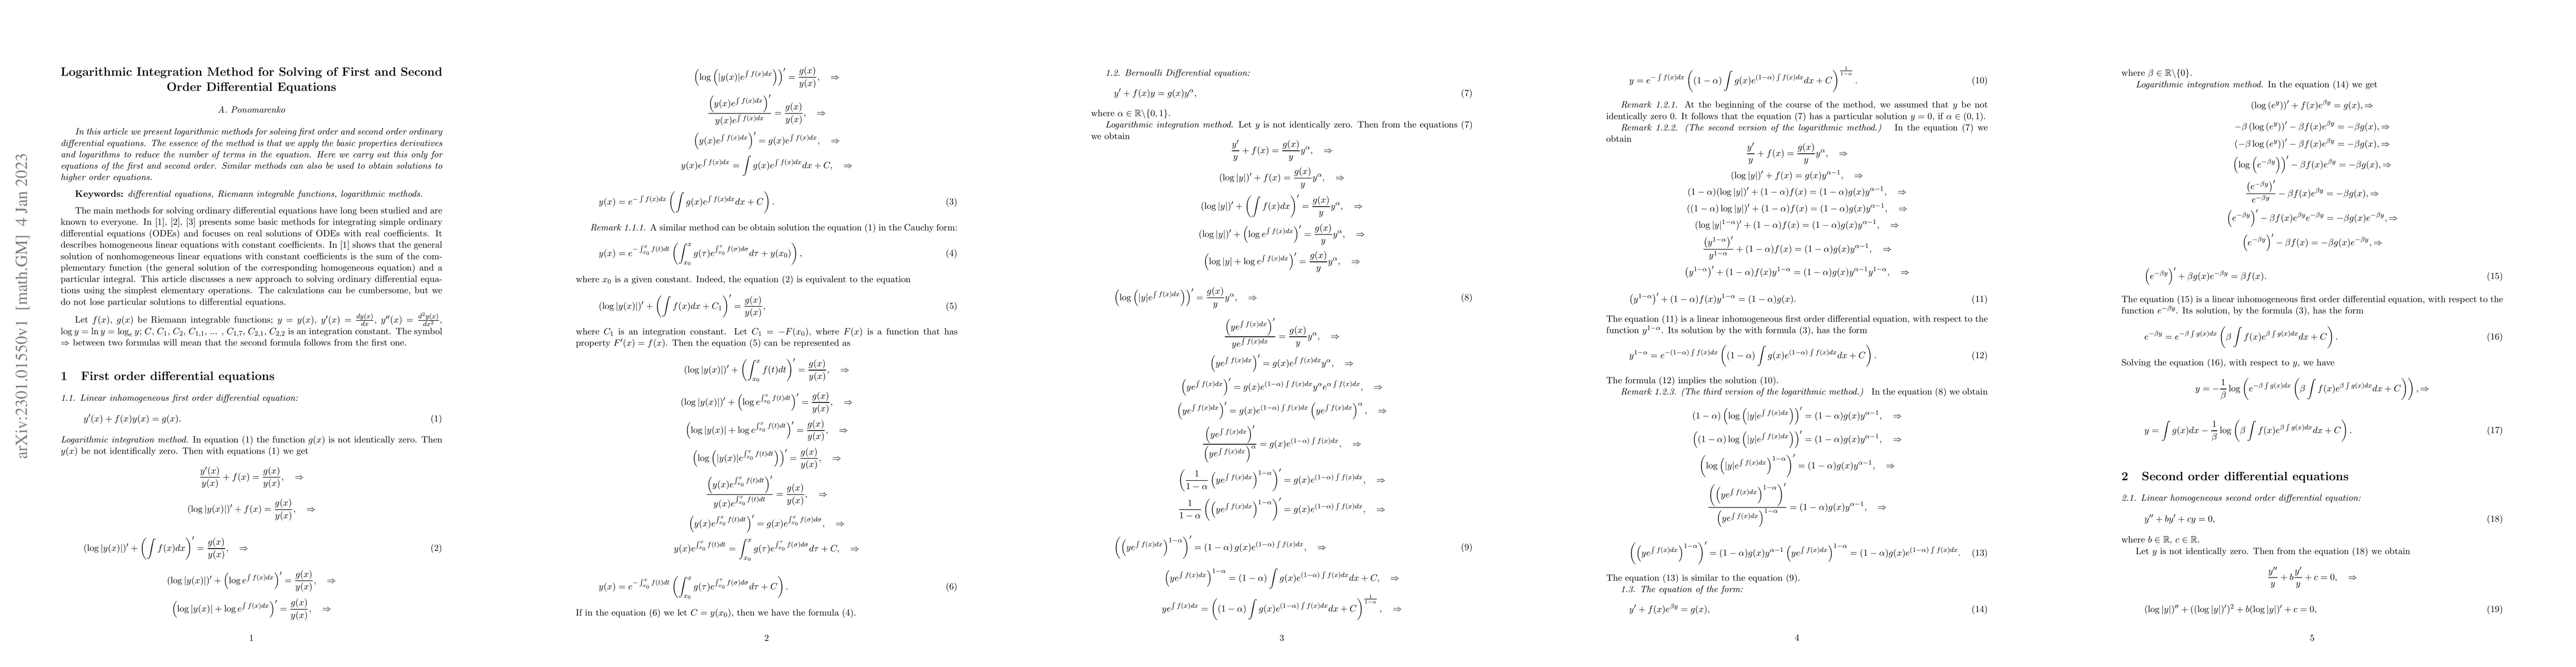 arXiv:2301.01550v1 [math.GM] 4 Jan 2023
Logarithmic Integration Method for Solving of First and Second
Order Differential Equations
A. Ponomarenko
In this article we present logarithmic methods for solving first order and second order ordinary
differential equations. The essence of the method is that we apply the basic properties derivatives
and logarithms to reduce the number of terms in the equation. Here we carry out this only for
equations of the first and second order. Similar methods can also be used to obtain solutions to
higher order equations.
Keywords: differential equations, Riemann integrable functions, logarithmic methods.
The main methods for solving ordinary differential equations have long been studied and are
known to everyone. In [1], [2], [3] presents some basic methods for integrating simple ordinary
differential equations (ODEs) and focuses on real solutions of ODEs with real coefficients. It
describes homogeneous linear equations with constant coefficients. In [1] shows that the general
solution of nonhomogeneous linear equations with constant coefficients is the sum of the com-
plementary function (the general solution of the corresponding homogeneous equation) and a
particular integral. This article discusses a new approach to solving ordinary differential equa-
tions using the simplest elementary operations. The calculations can be cumbersome, but we
do not lose particular solutions to differential equations.
Let f(x), g(x) be Riemann integrable functions; y = y(x), y′(x) = dy(x)/dx, y″(x) = d²y(x)/dx²,
log y = ln y = log_e y; C, C_1, C_2, C_{1,1}, ... , C_{1,7}, C_{2,1}, C_{2,2} is an integration constant. The symbol
⇒ between two formulas will mean that the second formula follows from the first one.
1 First order differential equations
1.1. Linear inhomogeneous first order differential equation:
y′(x) + f(x)y(x) = g(x). (1)
Logarithmic integration method. In equation (1) the function g(x) is not identically zero. Then
y(x) be not identifically zero. Then with equations (1) we get
y′(x)/y(x) + f(x) = g(x)/y(x), ⇒
(log |y(x)|)′ + f(x) = g(x)/y(x), ⇒
(log |y(x)|)′ + (∫ f(x)dx)′ = g(x)/y(x), ⇒ (2)
(log |y(x)|)′ + (log e^{∫ f(x)dx})′ = g(x)/y(x), ⇒
(log |y(x)| + log e^{∫ f(x)dx})′ = g(x)/y(x), ⇒
1
(log (|y(x)|e^{∫ f(x)dx}))′ = g(x)/y(x), ⇒
(y(x)e^{∫ f(x)dx})′/y(x)e^{∫ f(x)dx} = g(x)/y(x), ⇒
(y(x)e^{∫ f(x)dx})′ = g(x)e^{∫ f(x)dx}, ⇒
y(x)e^{∫ f(x)dx} = ∫ g(x)e^{∫ f(x)dx}dx + C, ⇒
y(x) = e^{−∫ f(x)dx} (∫ g(x)e^{∫ f(x)dx}dx + C). (3)
Remark 1.1.1. A similar method can be obtain solution the equation (1) in the Cauchy form:
y(x) = e^{−∫_{x_0}^x f(t)dt} (∫_{x_0}^x g(τ)e^{∫_{x_0}^τ f(σ)dσ}dτ + y(x_0)), (4)
where x_0 is a given constant. Indeed, the equation (2) is equivalent to the equation
(log |y(x)|)′ + (∫ f(x)dx + C_1)′ = g(x)/y(x), (5)
where C_1 is an integration constant. Let C_1 = −F(x_0), where F(x) is a function that has
property F′(x) = f(x). Then the equation (5) can be represented as
(log |y(x)|)′ + (∫_{x_0}^x f(t)dt)′ = g(x)/y(x), ⇒
(log |y(x)|)′ + (log e^{∫_{x_0}^x f(t)dt})′ = g(x)/y(x), ⇒
(log |y(x)| + log e^{∫_{x_0}^x f(t)dt})′ = g(x)/y(x), ⇒
(log (|y(x)|e^{∫_{x_0}^x f(t)dt}))′ = g(x)/y(x), ⇒
(y(x)e^{∫_{x_0}^x f(t)dt})′/y(x)e^{∫_{x_0}^x f(t)dt} = g(x)/y(x), ⇒
(y(x)e^{∫_{x_0}^x f(t)dt})′ = g(x)e^{∫_{x_0}^x f(σ)dσ}, ⇒
y(x)e^{∫_{x_0}^x f(t)dt} = ∫_{x_0}^x g(τ)e^{∫_{x_0}^τ f(σ)dσ}dτ + C, ⇒
y(x) = e^{−∫_{x_0}^x f(t)dt} (∫_{x_0}^x g(τ)e^{∫_{x_0}^τ f(σ)dσ}dτ + C). (6)
If in the equation (6) we let C = y(x_0), then we have the formula (4).
2
1.2. Bernoulli Differential equation:
y′ + f(x)y = g(x)y^α, (7)
where α ∈ ℝ\{0, 1}.
Logarithmic integration method. Let y is not identically zero. Then from the equations (7)
we obtain
y′/y + f(x) = g(x)/y y^α, ⇒
(log |y|)′ + f(x) = g(x)/y y^α, ⇒
(log |y|)′ + (∫ f(x)dx)′ = g(x)/y y^α, ⇒
(log |y|)′ + (log e^{∫ f(x)dx})′ = g(x)/y y^α, ⇒
(log |y| + log e^{∫ f(x)dx})′ = g(x)/y y^α, ⇒
(log (|y|e^{∫ f(x)dx}))′ = g(x)/y y^α, ⇒ (8)
(ye^{∫ f(x)dx})′/ye^{∫ f(x)dx} = g(x)/y y^α, ⇒
(ye^{∫ f(x)dx})′ = g(x)e^{∫ f(x)dx}y^α, ⇒
(ye^{∫ f(x)dx})′ = g(x)e^{(1−α) ∫ f(x)dx}y^αe^{α ∫ f(x)dx}, ⇒
(ye^{∫ f(x)dx})′ = g(x)e^{(1−α) ∫ f(x)dx} (ye^{∫ f(x)dx})^α, ⇒
(ye^{∫ f(x)dx})′/(ye^{∫ f(x)dx})^α = g(x)e^{(1−α) ∫ f(x)dx}, ⇒
(1/(1−α) (ye^{∫ f(x)dx})^{1−α})′ = g(x)e^{(1−α) ∫ f(x)dx}, ⇒
1/(1−α) ((ye^{∫ f(x)dx})^{1−α})′ = g(x)e^{(1−α) ∫ f(x)dx}, ⇒
((ye^{∫ f(x)dx})^{1−α})′ = (1 − α) g(x)e^{(1−α) ∫ f(x)dx}, ⇒ (9)
(ye^{∫ f(x)dx})^{1−α} = (1 − α) ∫ g(x)e^{(1−α) ∫ f(x)dx}dx + C, ⇒
ye^{∫ f(x)dx} = ((1 − α) ∫ g(x)e^{(1−α) ∫ f(x)dx}dx + C)^{1/(1−α)}, ⇒
3
y = e^{−∫ f(x)dx} ((1 − α) ∫ g(x)e^{(1−α) ∫ f(x)dx}dx + C)^{1/(1−α)}. (10)
Remark 1.2.1. At the beginning of the course of the method, we assumed that y be not
identically zero 0. It follows that the equation (7) has a particular solution y = 0, if α ∈ (0, 1).
Remark 1.2.2. (The second version of the logarithmic method.) In the equation (7) we
obtain
y′/y + f(x) = g(x)/y y^α, ⇒
(log |y|)′ + f(x) = g(x)y^{α−1}, ⇒
(1 − α)(log |y|)′ + (1 − α)f(x) = (1 − α)g(x)y^{α−1}, ⇒
((1 − α) log |y|)′ + (1 − α)f(x) = (1 − α)g(x)y^{α−1}, ⇒
(log |y|^{1−α})′ + (1 − α)f(x) = (1 − α)g(x)y^{α−1}, ⇒
(y^{1−α})′/y^{1−α} + (1 − α)f(x) = (1 − α)g(x)y^{α−1}, ⇒
(y^{1−α})′ + (1 − α)f(x)y^{1−α} = (1 − α)g(x)y^{α−1}y^{1−α}, ⇒
(y^{1−α})′ + (1 − α)f(x)y^{1−α} = (1 − α)g(x). (11)
The equation (11) is a linear inhomogeneous first order differential equation, with respect to the
function y^{1−α}. Its solution by the with formula (3), has the form
y^{1−α} = e^{−(1−α) ∫ f(x)dx} ((1 − α) ∫ g(x)e^{(1−α) ∫ f(x)dx}dx + C). (12)
The formula (12) implies the solution (10).
Remark 1.2.3. (The third version of the logarithmic method.) In the equation (8) we obtain
(1 − α) (log (|y|e^{∫ f(x)dx}))′ = (1 − α)g(x)y^{α−1}, ⇒
((1 − α) log (|y|e^{∫ f(x)dx}))′ = (1 − α)g(x)y^{α−1}, ⇒
(log (|y|e^{∫ f(x)dx})^{1−α})′ = (1 − α)g(x)y^{α−1}, ⇒
((ye^{∫ f(x)dx})^{1−α})′/(ye^{∫ f(x)dx})^{1−α} = (1 − α)g(x)y^{α−1}, ⇒
((ye^{∫ f(x)dx})^{1−α})′ = (1 − α)g(x)y^{α−1} (ye^{∫ f(x)dx})^{1−α} = (1 − α)g(x)e^{(1−α) ∫ f(x)dx}. (13)
The equation (13) is similar to the equation (9).
1.3. The equation of the form:
y′ + f(x)e^{βy} = g(x), (14)
4
where β ∈ ℝ\{0}.
Logarithmic integration method. In the equation (14) we get
(log (e^y))′ + f(x)e^{βy} = g(x), ⇒
−β (log (e^y))′ − βf(x)e^{βy} = −βg(x), ⇒
(−β log (e^y))′ − βf(x)e^{βy} = −βg(x), ⇒
(log (e^{−βy}))′ − βf(x)e^{βy} = −βg(x), ⇒
(e^{−βy})′/e^{−βy} − βf(x)e^{βy} = −βg(x), ⇒
(e^{−βy})′ − βf(x)e^{βy}e^{−βy} = −βg(x)e^{−βy}, ⇒
(e^{−βy})′ − βf(x) = −βg(x)e^{−βy}, ⇒
(e^{−βy})′ + βg(x)e^{−βy} = βf(x). (15)
The equation (15) is a linear inhomogeneous first order differential equation, with respect to the
function e^{−βy}. Its solution, by the formula (3), has the form
e^{−βy} = e^{−β ∫ g(x)dx} (β ∫ f(x)e^{β ∫ g(x)dx}dx + C). (16)
Solving the equation (16), with respect to y, we have
y = −1/β log (e^{−β ∫ g(x)dx} (β ∫ f(x)e^{β ∫ g(x)dx}dx + C)), ⇒
y = ∫ g(x)dx − 1/β log (β ∫ f(x)e^{β ∫ g(x)dx}dx + C). (17)
2 Second order differential equations
2.1. Linear homogeneous second order differential equation:
y″ + by′ + cy = 0, (18)
where b ∈ ℝ, c ∈ ℝ.
Let y is not identically zero. Then from the equation (18) we obtain
y″/y + b y′/y + c = 0, ⇒
(log |y|)″ + ((log |y|)′)² + b(log |y|)′ + c = 0, (19)
5